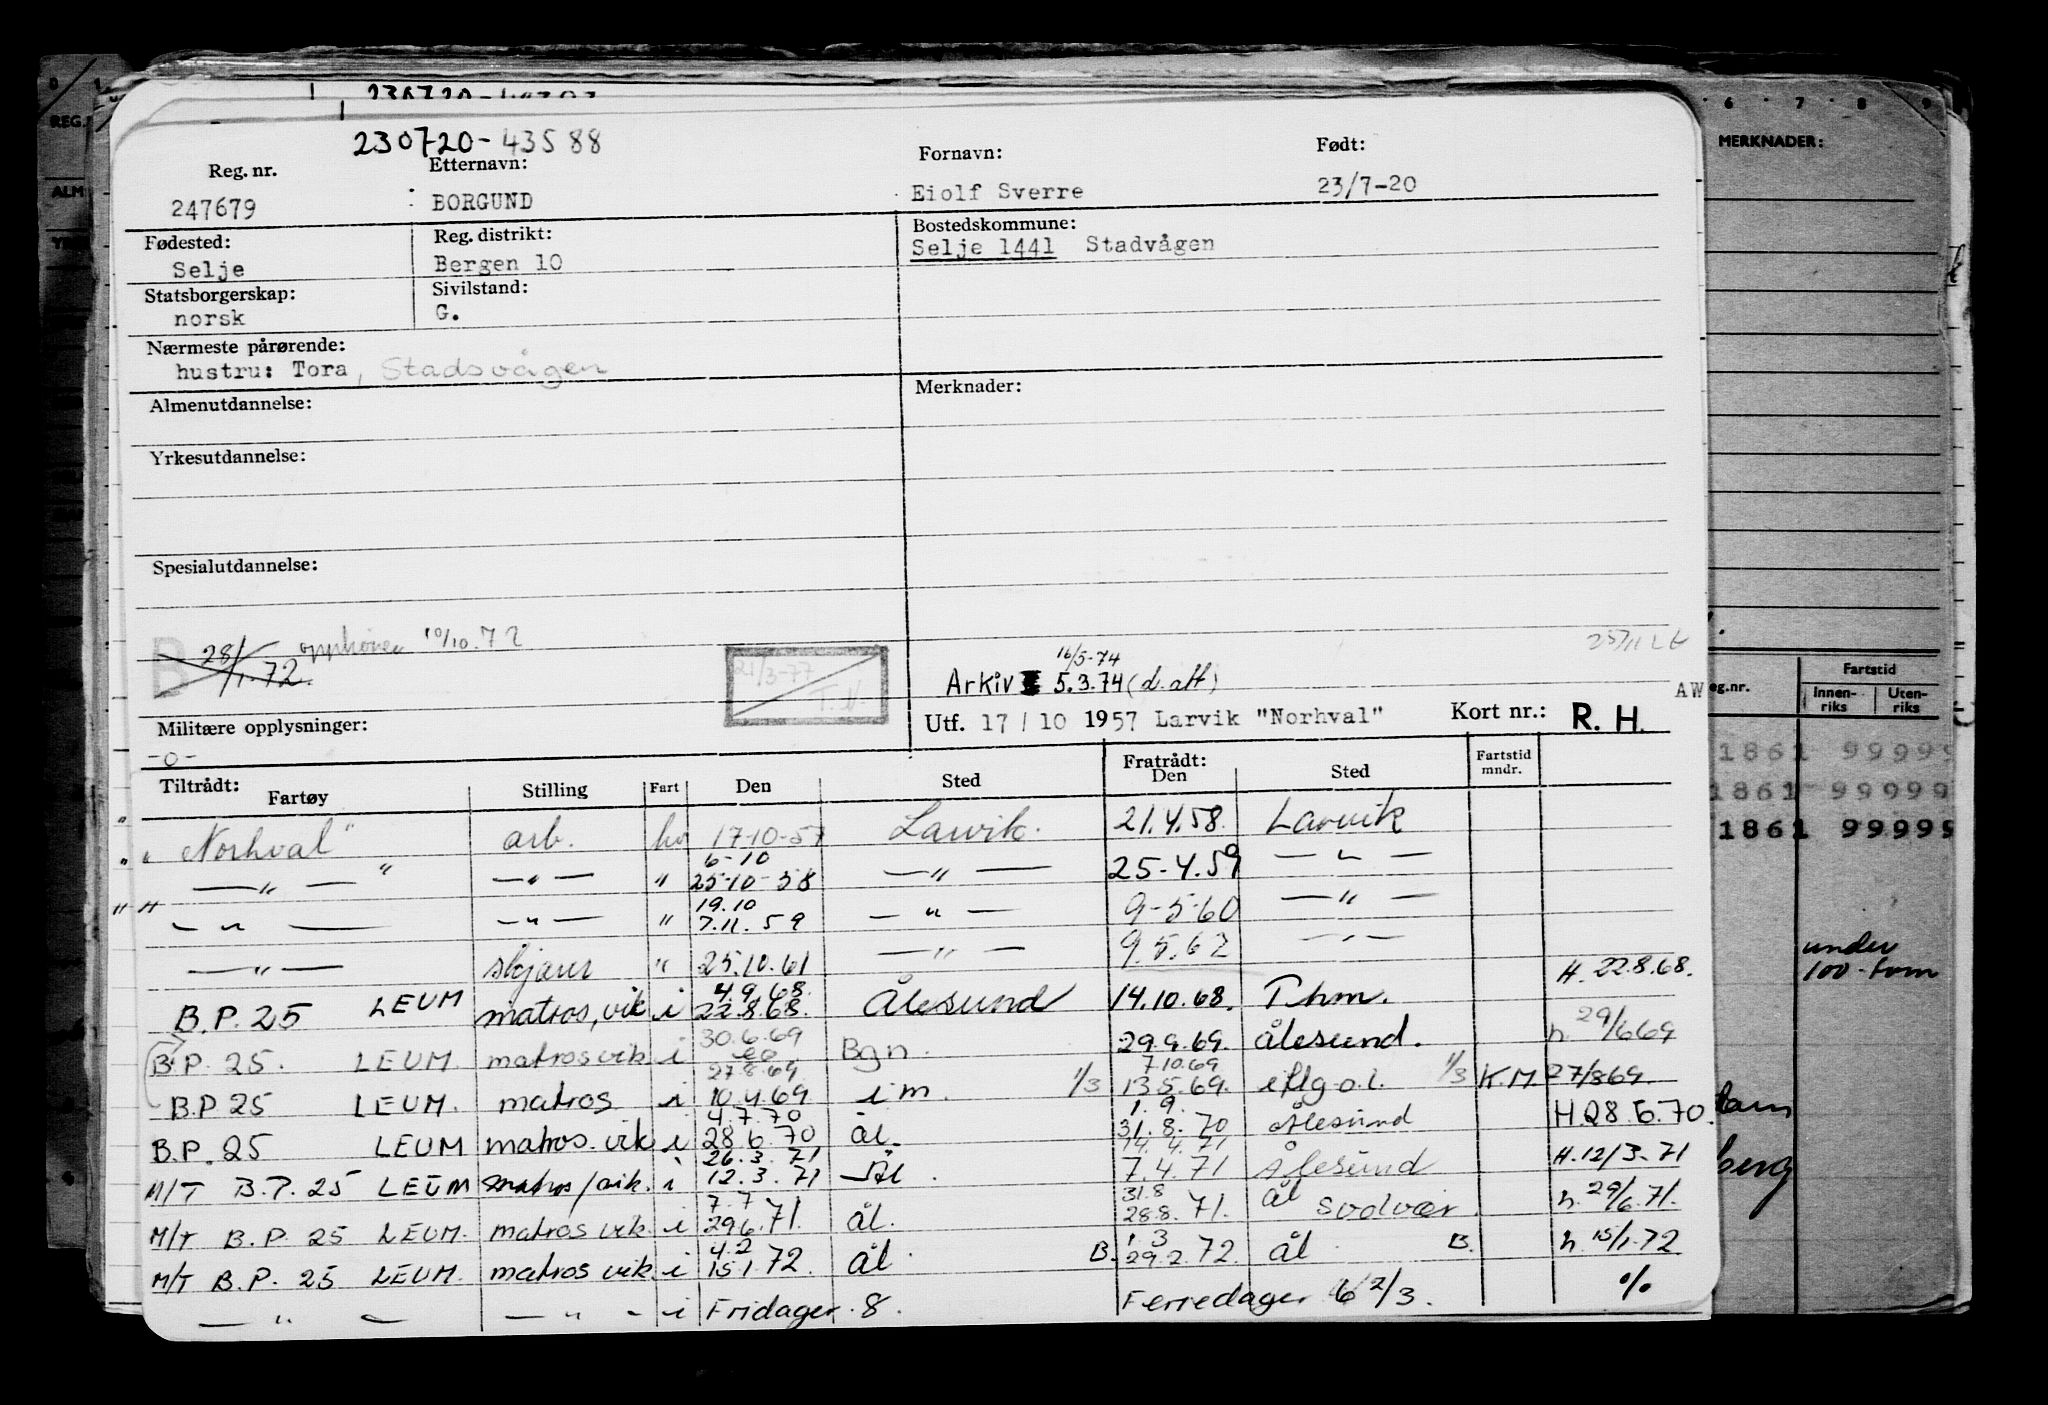 0 1 6 7 8 9
REG. MERKNADER:
ALM
230720-43588
Reg. nr. Etternavn: Fornavn: Født:
247679 BORGUND Eiolf Sverre 23/7-20
Fødested: Reg. distrikt: Bostedskommune:
Selje Bergen 10 Selje 1441 Stadvågen
Statsborgerskap: Sivilstand:
norsk G.
Nærmeste pårørende:
hustru: Tora, Stadsvågen
Almenutdannelse: Merknader:
Yrkesutdannelse:
Spesialutdannelse:
B 28/1.72. opphører 10/10.72
21/3-77 T.
16/5-74
Arkiv 5.3.74 (d. att)
Militære opplysninger: Utf. 17/10 1957 Larvik "Norhval" Kort nr.: R. H. AW
-o-
Tiltrådt: Fratrådt: Fartstid mndr.
Fartøy Stilling Fart Den Sted Den Sted
" " Norhval" arb. hv 17-10-57 Larvik. 21.4.58. Larvik
— " — " — " — " 6-10 25-10-58 — " — 25-4.59 — " —
" " — " — — " — " 19.10 7.11.59 — " — 9-5-60 — " —
— " — skjærer " 25.10.61 — " — 9.5.62 — " —
B.P. 25 LEUM matros, vik i 4.9.68. 22.8.68. Ålesund 14.10.68. Thm. H. 22.8.68.
B.P. 25. LEUM. matros vik. i 30.6.69 Bgn. 29.9.69. ålesund. h. 29/6 69
B.P 25 LEUM. matros i 27.8.69 10.4.69 i m. 1/3 7.10.69 13.5.69. iflg o.l. 1/3 K.M. 27/8 69.
B.P. 25 LEUM matros. vik i 4.7.70 28.6.70 ål. 1.9. 31.8.70 Ålesund H 28.6.70.
M/T B.P. 25 LEUM matros/vik. i 26.3.71 12.3.71 Ål. 14.4.71 7.4.71 Ålesund H. 12/3.71
M/T B.P. 25 LEUM. matros vik. i 7.7 29.6.71. ål. 31.8 28.8.71. ål Svolvær. h. 29/6.71.
M/T B.P. 25 LEUM. matros vik. i 4.2 15.1.72. ål. B. 1.3 29.2.72. ål. B. h. 15/1.72
— " — — " — i Fridager 8. Ferredager 6 2/3. %
eg.nr. Fartstid
Innen-riks Uten-riks
1861 99999
1861 99999
1861 99999
under
100-tonn
berg